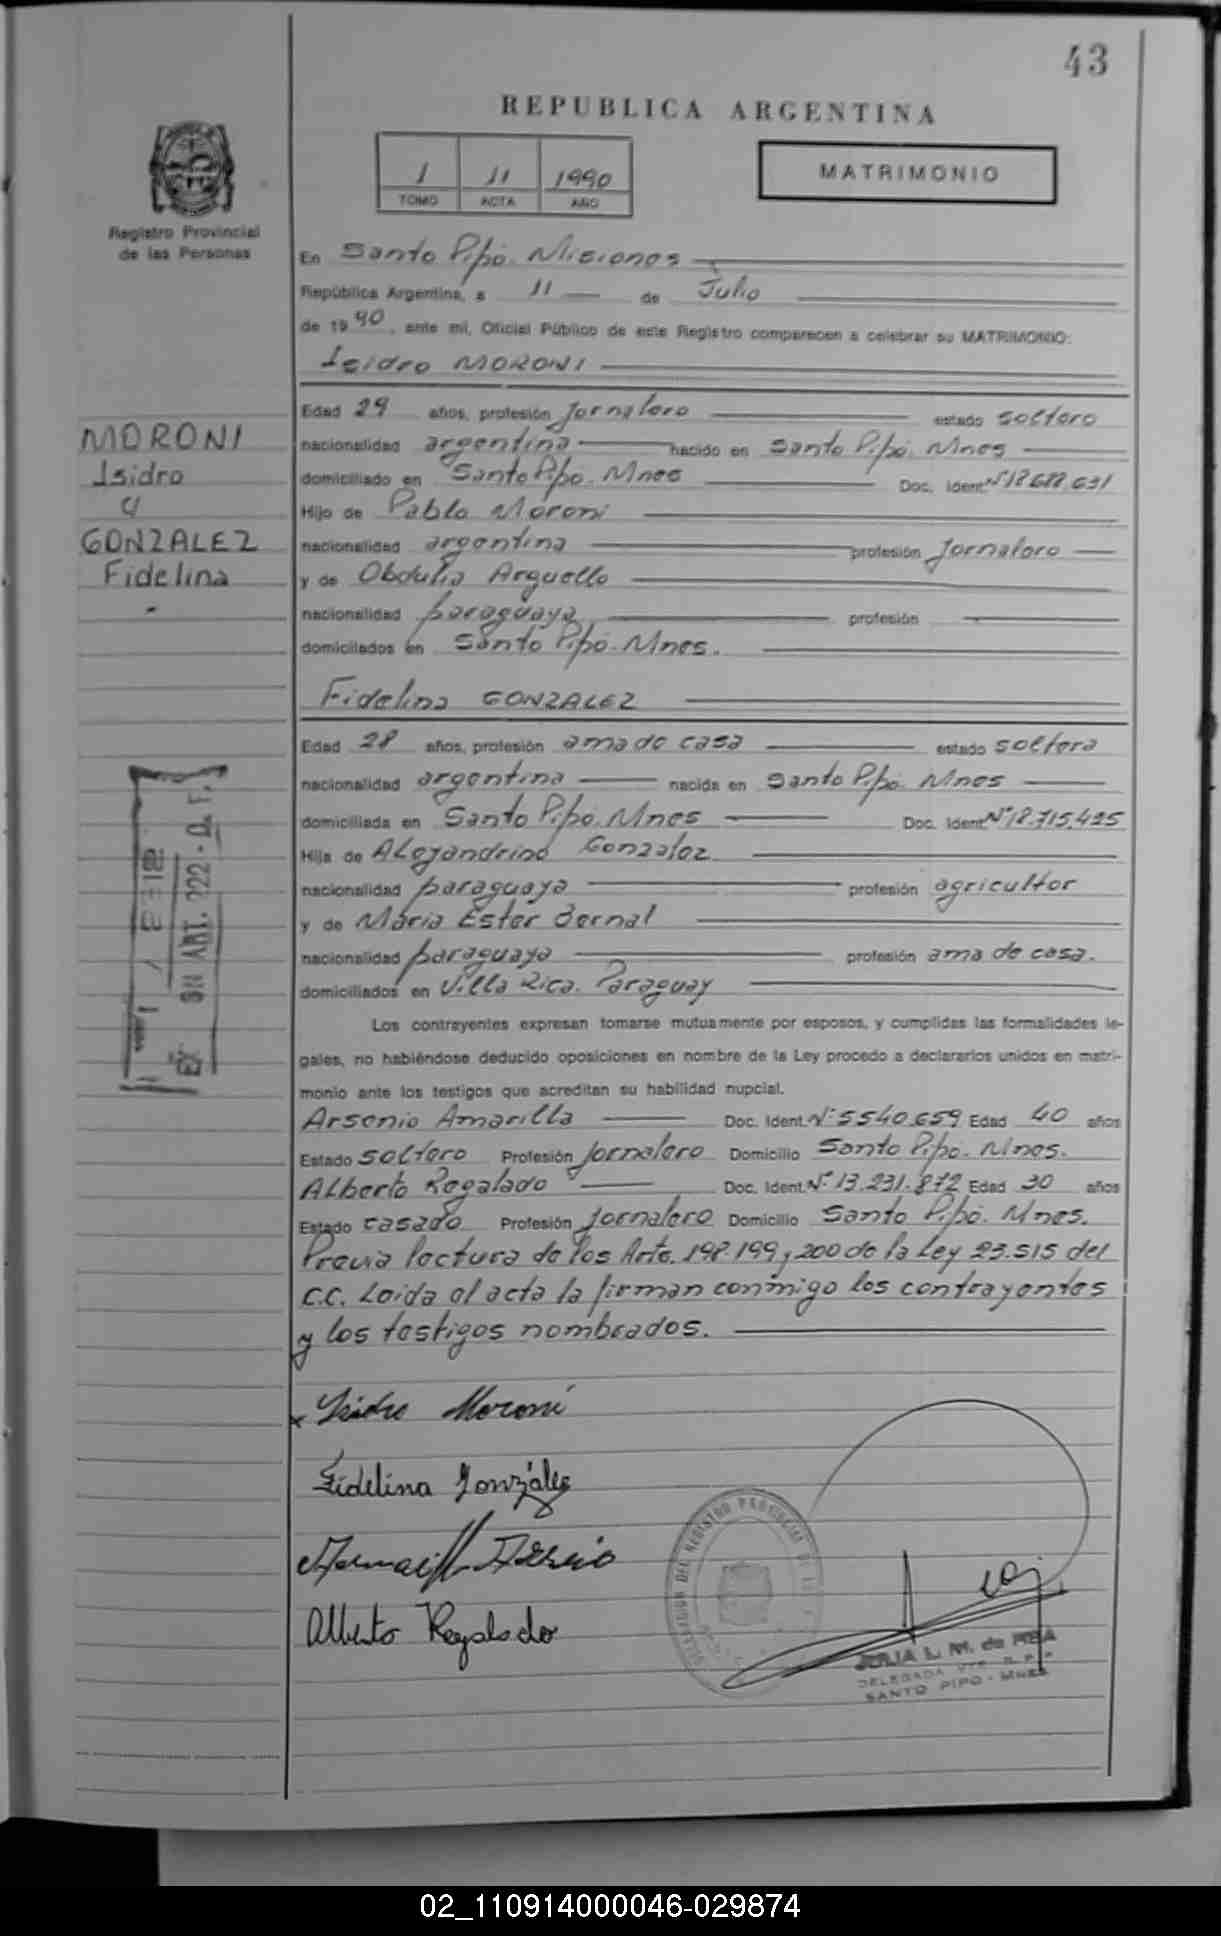 43
REPUBLICA ARGENTINA
1 11 1990
TOMO ACTA AÑO
MATRIMONIO
Registro Provincial
de las Personas
En Santo Pipó. Misiones
República Argentina, a 11 de Julio
de 1990, ante mí, Oficial Público de este Registro comparecen a celebrar su MATRIMONIO:
Isidro MORONI
MORONI
Isidro
c/
GONZALEZ
Fidelina
Edad 29 años, profesión Jornalero estado soltero
nacionalidad argentina nacido en Santo Pipó. Mnes
domiciliado en Santo Pipó. Mnes Doc. Ident. Nº
Hijo de Pablo Moroni
nacionalidad argentina profesión Jornalero
y de Obdulia Arguello
nacionalidad paraguaya profesión
domiciliados en Santo Pipó. Mnes.
Fidelina GONZALEZ
Edad 28 años, profesión ama de casa estado soltera
nacionalidad argentina nacida en Santo Pipó. Mnes
domiciliada en Santo Pipó. Mnes Doc. Ident. Nº 18.715.425
Hija de Alejandrino Gonzalez
nacionalidad paraguaya profesión agricultor
y de María Ester Bernal
nacionalidad paraguaya profesión ama de casa.
domiciliados en Villa Rica. Paraguay
Los contrayentes expresan tomarse mutuamente por esposos, y cumplidas las formalidades le-
gales, no habiéndose deducido oposiciones en nombre de la Ley procedo a declararlos unidos en matri-
monio ante los testigos que acreditan su habilidad nupcial.
Arsenio Amarilla Doc. Ident. Nº 5540.659 Edad 40 años
Estado soltero Profesión Jornalero Domicilio Santo Pipó. Mnes.
Alberto Regalado Doc. Ident. Nº 13.231.872 Edad 30 años
Estado casado Profesión Jornalero Domicilio Santo Pipó. Mnes.
Previa lectura de los Arts. 198.199 y 200 de la Ley 23.515 del
C.C. Leida el acta la firman conmigo los contrayentes
y los testigos nombrados.
ART. 222 - D. F.
x Isidro Moroni
Fidelina González
Alberto Regalado
DELEGACION DEL REGISTRO PROVINCIAL DE
JULIA L. M. de REA
DELEGADA
SANTO PIPO - MNES
02_110914000046-029874